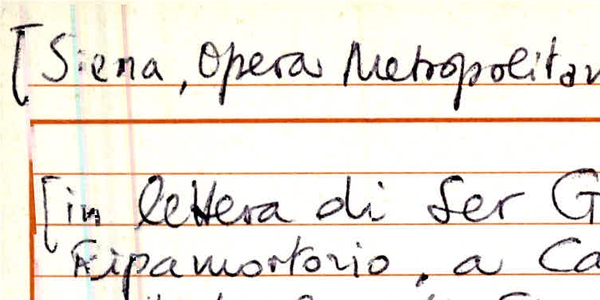 [Siena, Opera Metropolitan
[in lettera di Ser G
Ripamortorio, a Ca